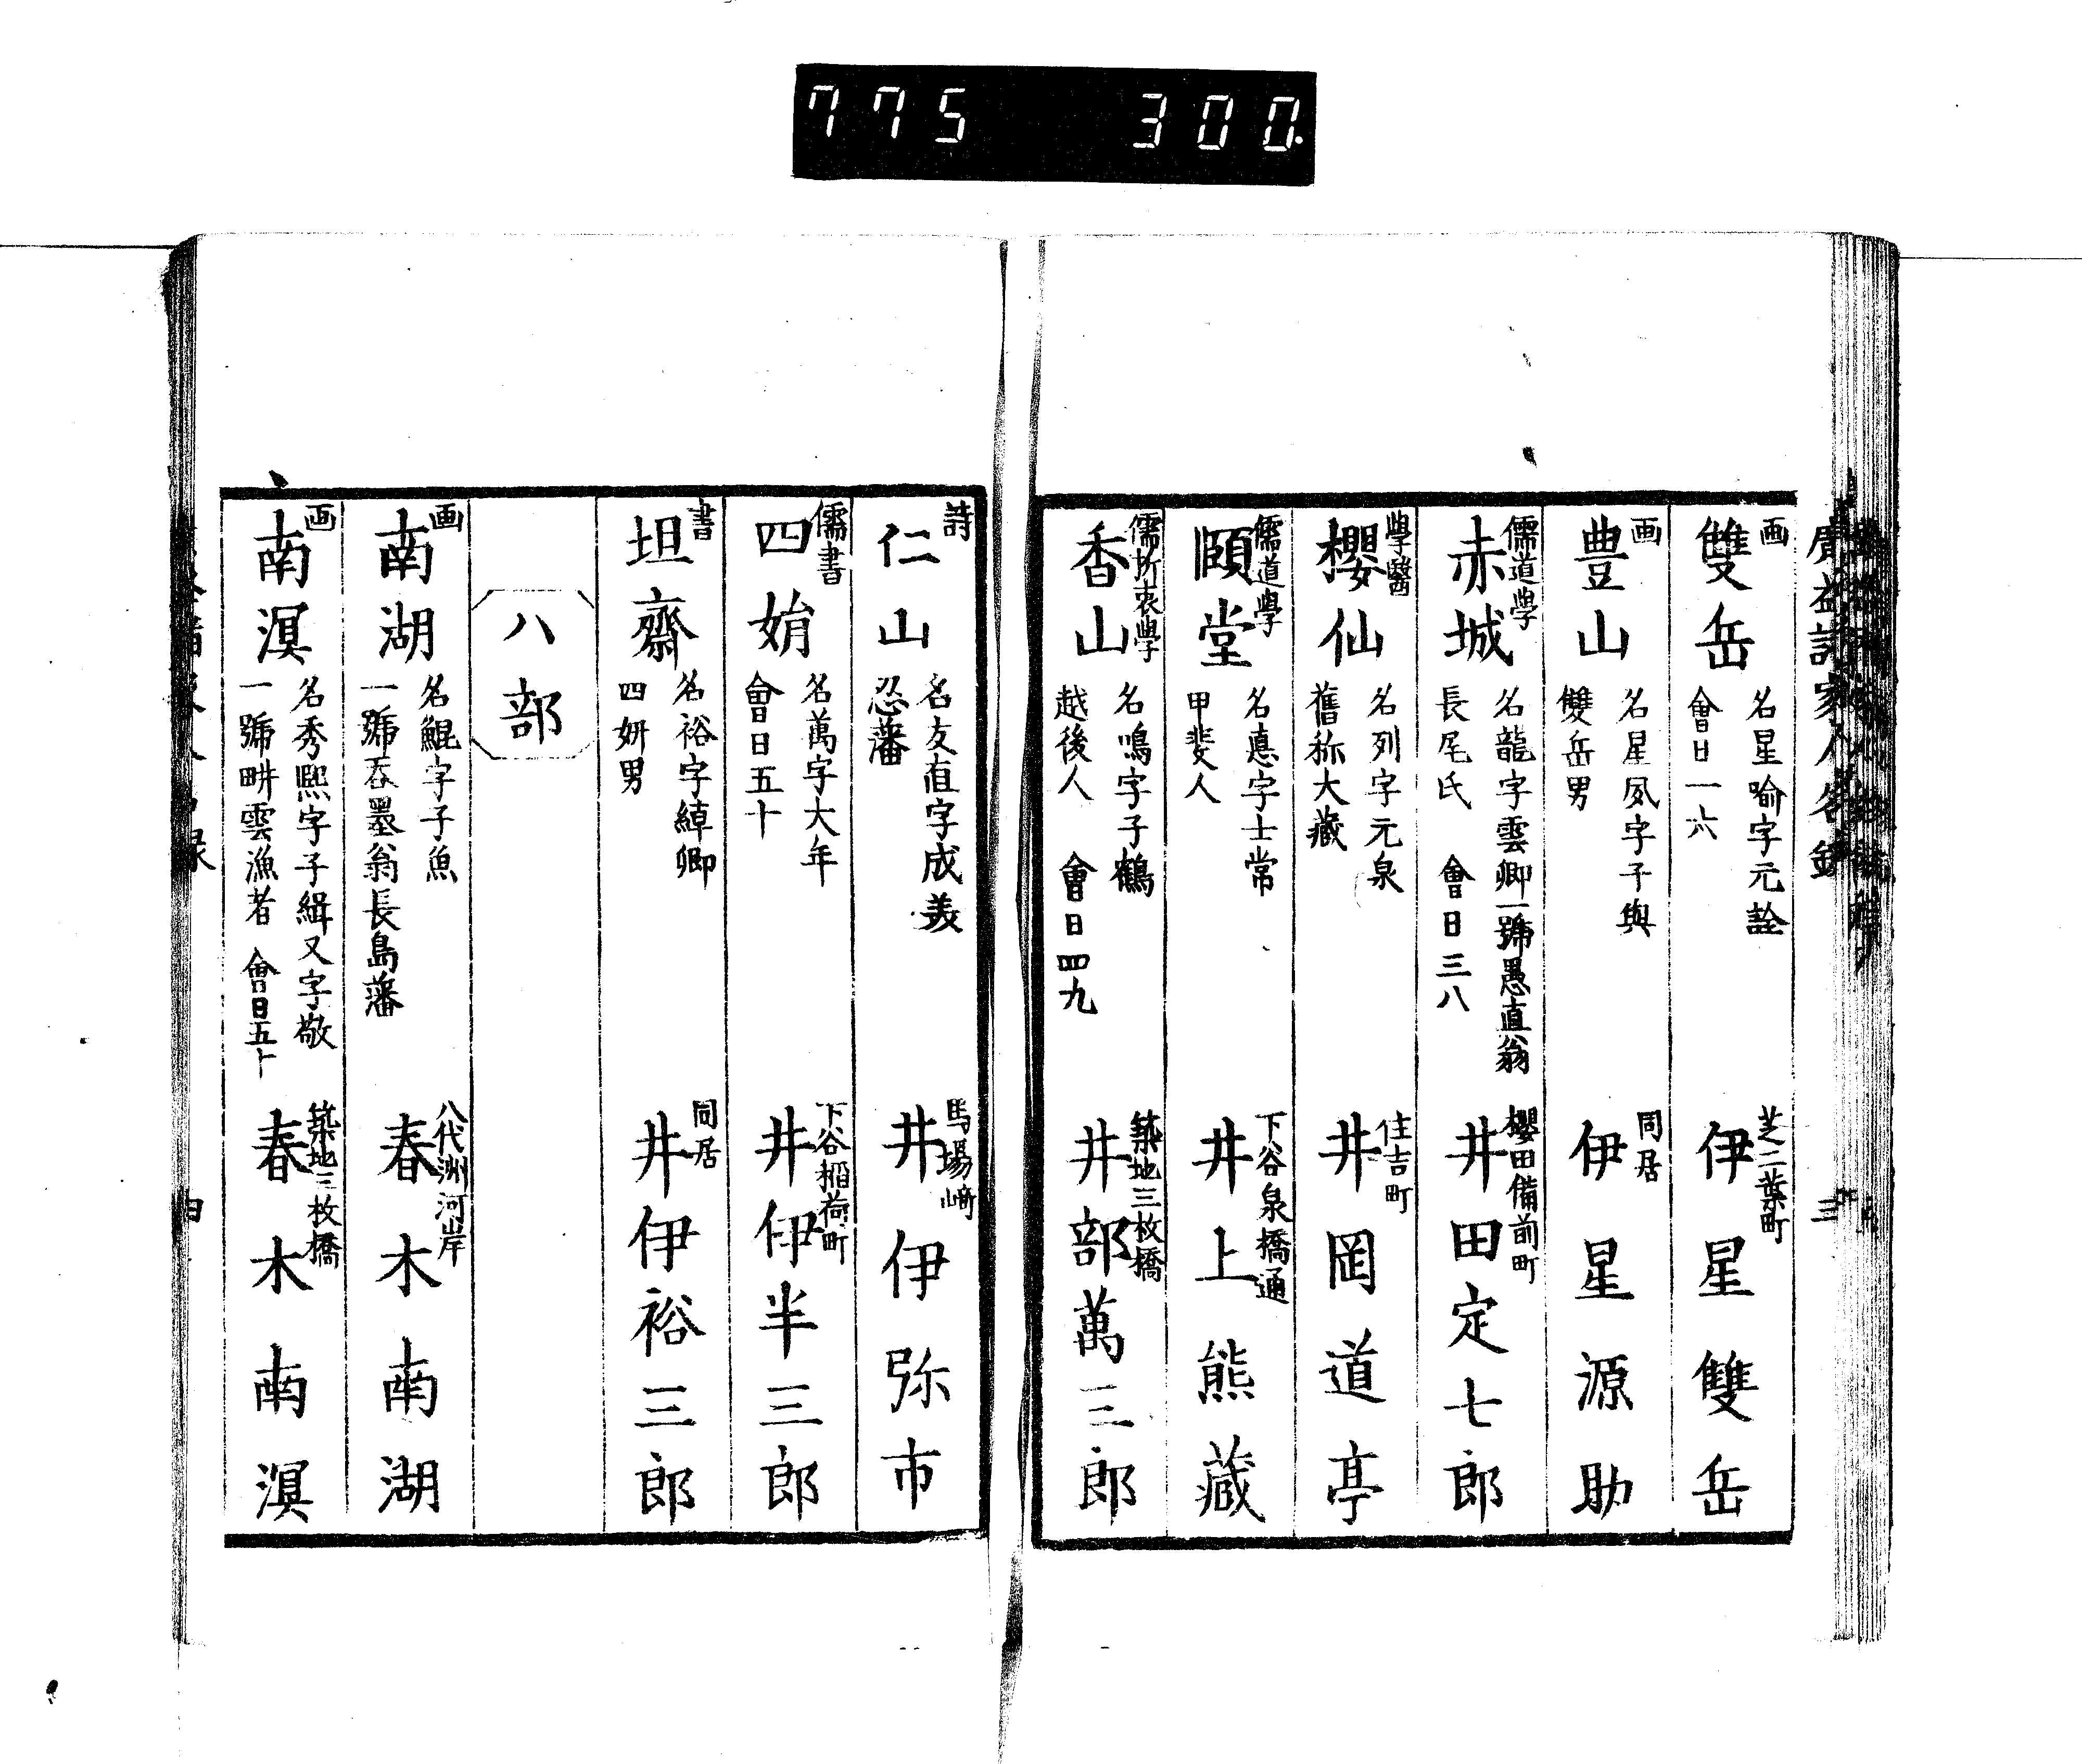 775 300.
廣益諸家人名録
三
画
雙岳
名星喻字元詮
會日一六
芝二葉町
伊星雙岳
画
豊山
名星夙字子與
雙岳男
同居
伊星源助
儒道學
赤城
名龍字雲卿一號愚直翁
長尾氏 會日三八
櫻田備前町
井田定七郎
學醫
櫻仙
名列字元泉
舊称大藏
住吉町
井岡道亭
儒道學
頤堂
名悳字士常
甲斐人
下谷泉橋通
井上熊藏
儒折衷學
香山
名鳴字子鶴
越後人 會日四九
築地三枚橋
井部萬三郎
詩
仁山
名友直字成美
忍藩
馬場﨑
井伊弥市
儒書
四姷
名萬字大年
會日五十
下谷稲荷町
井伊半三郎
書
坦齋
名裕字綽卿
四妍男
同居
井伊裕三郎
八部
画
南湖
名鯤字子魚
一號吞墨翁長島藩
八代洲河岸
春木南湖
画
南溟
名秀熈字子緝又字敬
一號畊雲漁者 會日五十
築地三枚橋
春木南溟